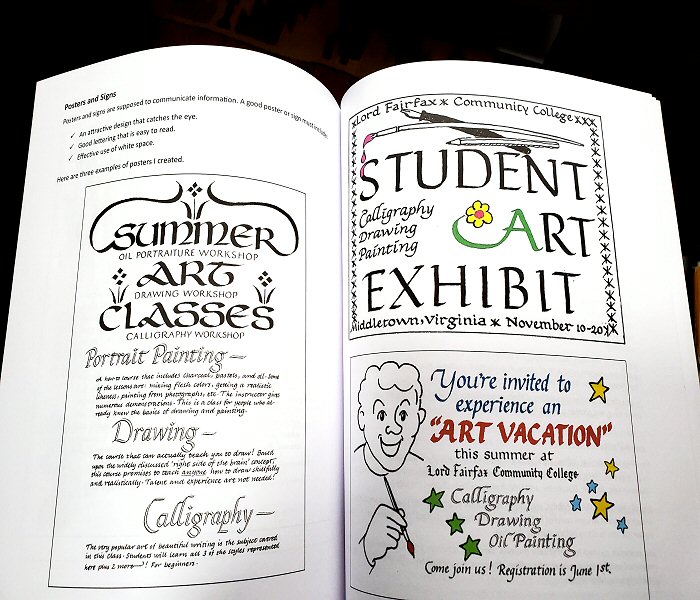 Posters and Signs
Posters and signs are supposed to communicate information. A good poster or sign must include:
✓ An attractive design that catches the eye.
✓ Good lettering that is easy to read.
✓ Effective use of white space.
Here are three examples of posters I created.
SUMMER
OIL PORTRAITURE WORKSHOP
ART
DRAWING WORKSHOP
CLASSES
CALLIGRAPHY WORKSHOP
Portrait Painting —
A how-to course that includes charcoal, pastels, and oil. Some
of the lessons are: mixing flesh colors, getting a realistic
likeness, painting from photographs, etc. The instructor gives
numerous demonstrations. This is a class for people who al-
ready know the basics of drawing and painting.
Drawing —
The course that can actually teach you to draw! Based
upon the widely discussed "right side of the brain" concept,
this course promises to teach anyone how to draw skillfully
and realistically. Talent and experience are not needed!
Calligraphy —
The very popular art of beautiful writing is the subject covered
in this class. Students will learn all 3 of the styles represented
here plus 2 more—! For beginners.
Lord Fairfax * Community College
STUDENT
Calligraphy
Drawing
Painting
ART
EXHIBIT
Middletown, Virginia * November 10-20
You're invited to
experience an
"ART VACATION"
this summer at
Lord Fairfax Community College
Calligraphy
Drawing
Oil Painting
Come join us! Registration is June 1st.